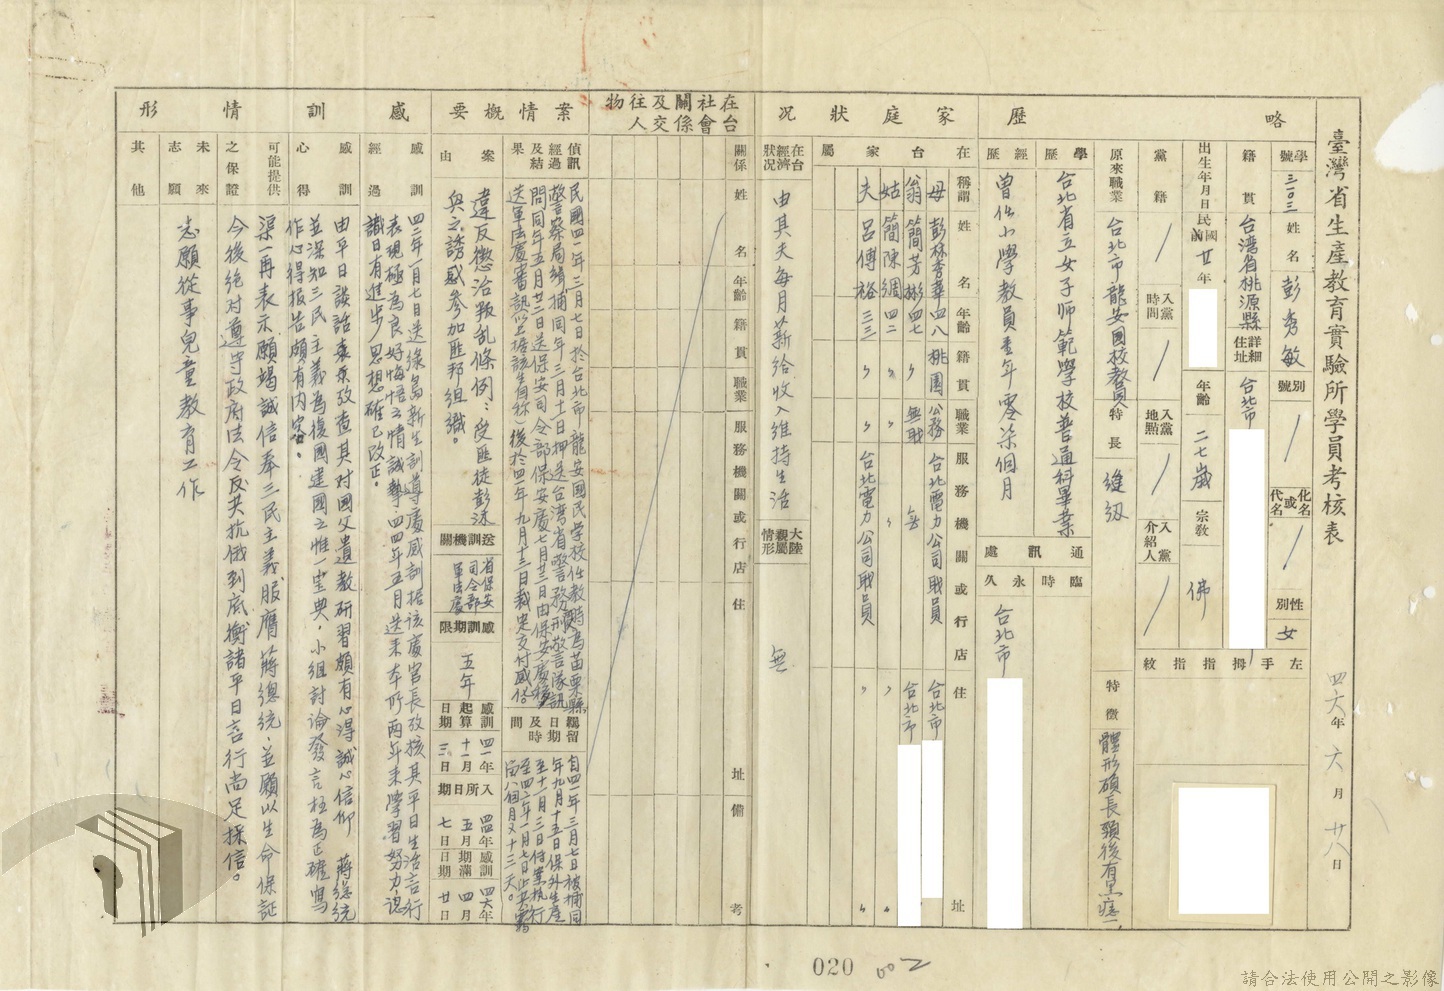 臺灣省生產教育實驗所學員考核表
四六年 六月 廿八日
略歷
學號 三〇三
姓名 彭秀敏
別號 /
化名或代名 /
性別 女
籍貫 台湾省桃源縣
詳細住址 台北市
出生年月日 民國前 廿年
年齡 二七歲
宗教 佛
左手拇指指紋
黨籍 /
入黨時間 /
入黨地點 /
入黨介紹人 /
原來職業 台北市龍安國校教員
特長 縫紉
特徵 體形碩長頸後有黑痣一
學歷 台北省立女子師範學校普通科畢業
經歷 曾任小學教員壹年零柒個月
通訊處
臨時
永久 台北市
家庭狀況
在台家屬
稱謂 姓名 年齡 籍貫 職業 服務機關或行店 住址
母 彭林秀華 四八 桃園 公務 台北電力公司職員 台北市
翁 簡芳彬 四七 〃 無職 無 台北市
姑 簡陳綢 四二 〃 〃 〃 〃 〃
夫 呂傳裕 三三 〃 〃 台北電力公司職員 〃 〃
在台經濟狀況 由其夫每月薪給收入維持生活
大陸親屬情形 無
在台社會關係及交往人物
關係 姓名 年齡 籍貫 職業 服務機關或行店 住址 備考
案情概要
偵訊經過及結果
民國四一年三月七日於台北市龍安國民學校任教時為苗栗縣
警察局緝捕同年三月十一日押送台湾省警務處刑警隊訊
問同年五月廿二日送保安司令部保安處七月廿三日由保安處移
送軍法處審訊(以上據該生自称)後於四一年九月十三日裁定交付感化
羈留日期及時間
自四一年三月七日被捕同
年九月十五日保外生產
至十一月三日付業執行
至四二年一月七日止共羈
留八個月又十三天。
案由
違反懲治叛乱條例:受匪徒彭沐
興之誘惑參加匪邦組織。
送訓機關 省保安司令部軍法處
感訓期限 五年
感訓起算日期 四一年十一月三日
入所日期 四四年五月七日
感訓期滿日期 四六年四月廿日
感訓情形
感訓經過
四二年一月七日送綠島新生訓導處感訓據該處官長攷核其平日生活言行
表現極為良好悔悟之情誠摯。四四年五月送來本所兩年來學習努力認
識日有進步思想確已改正。
感訓心得
由平日談話表素攷查其对國父遺教研習頗有心得誠心信仰 蔣總統
並深知三民主義為復國建國之惟一宝典。小組討論發言極為正確寫
作心得报告頗有內容。
可能提供之保證
渠一再表示願竭誠信奉三民主義服膺 蔣總統、並願以生命保証
今後絕对遵守政府法令反共抗俄到底衡諸平日言行尚足採信。
未來志願 志願從事兒童教育工作
其他
020
002
請合法使用公開之影像